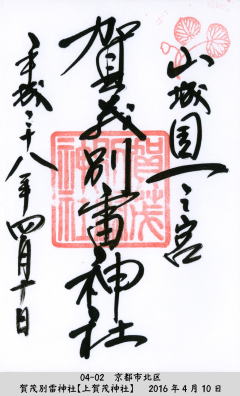 山城國一之宮
賀茂別雷神社
平成二十八年四月十日
04-02　京都市北区
賀茂別雷神社【上賀茂神社】　2016年4月10日